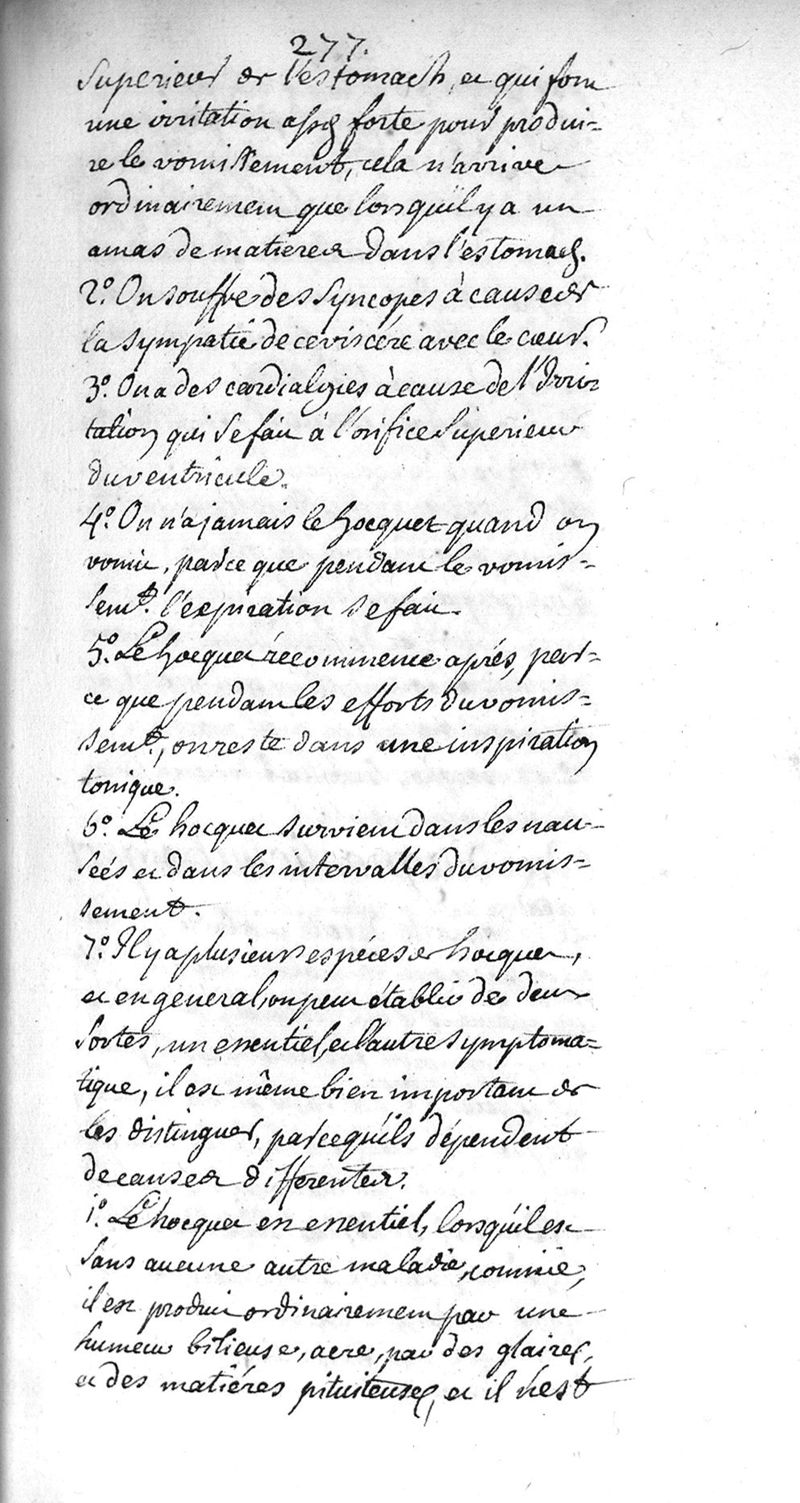 277.
Superieur de l'estomach, et qui font
une irritation assés forte pour produi=
re le vomissement, cela n'arrive
ordinairement que lorsqu'il y a un
amas de matieres dans l'estomach.
2.° On souffre des Syncopes à cause de
la sympatie de ce viscére avec le cœur.
3.° On a des cardialgies à cause de l'Irri=
tation qui se fait à l'orifice Superieur
du ventricule.
4.° On n'a jamais le hocquet quand on
vomit, parce que pendant le vomis=
sem.t l'expiration se fait.
5.° Le hocquet recommence après, par=
ce que pendant les efforts du vomis=
sem.t, on reste dans une inspiration
tonique.
6.° Le hocquet survient dans les nau=
seés et dans les intervalles du vomis=
sement.
7.° Il y a plusieurs espéces de hocquet,
et en general, on peut établir de deux
Sortes, un essentiel, et l'autre Symptoma=
tique, il est même bien important de
les distinguer, parce qu'ils dépendent
de causes differentes.
1.° Le hocquet est essentiel, lorsqu'il est
Sans aucune autre maladie, comme,
il est produit ordinairement par une
humeur bilieuse, acre, par des glaires,
et des matiéres pituiteuses, et il n'est